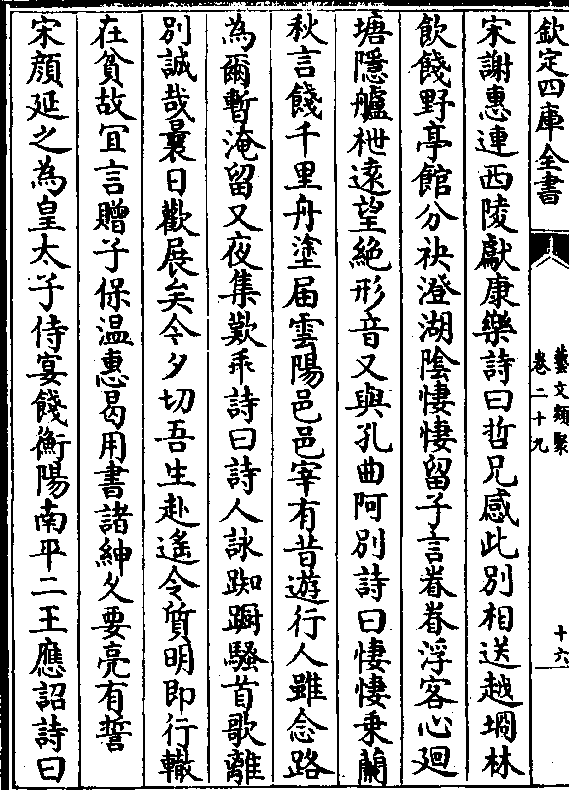 欽定四庫全書
藝文類聚
卷二十九
十六
宋謝惠連西陵獻康樂詩曰哲兄感此別相送越坰林
飲餞野亭館分袂澄湖陰悽悽留子言眷眷浮客心廻
塘隱艫枻遠望絶形音又與孔曲阿別詩曰悽悽乗蘭
秋言餞千里舟塗届雲陽邑邑宰有昔遊行人雖念路
為爾暫淹留又夜集歎乖詩曰詩人詠踟蹰騷首歌離
別誠哉曩日歡展矣今夕切吾生赴遙令質明即行轍
在貧故冝言贈子保温惠曷用書諸紳久要亮有誓
宋顔延之為皇太子侍宴餞衡陽南平二王應詔詩曰